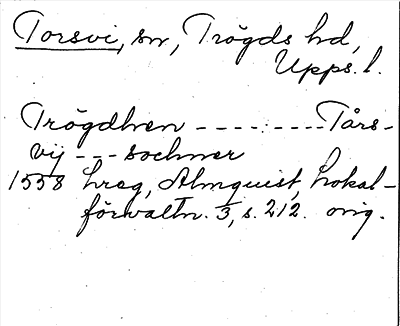 Torsvi, sn, Trögds hd,
Upps. l.
Trögdhren - - - - - - - - Tårs-
vij - - - sochner
1558 hreg, Almquist, Lokal-
förvaltn. 3, s. 212. orig.